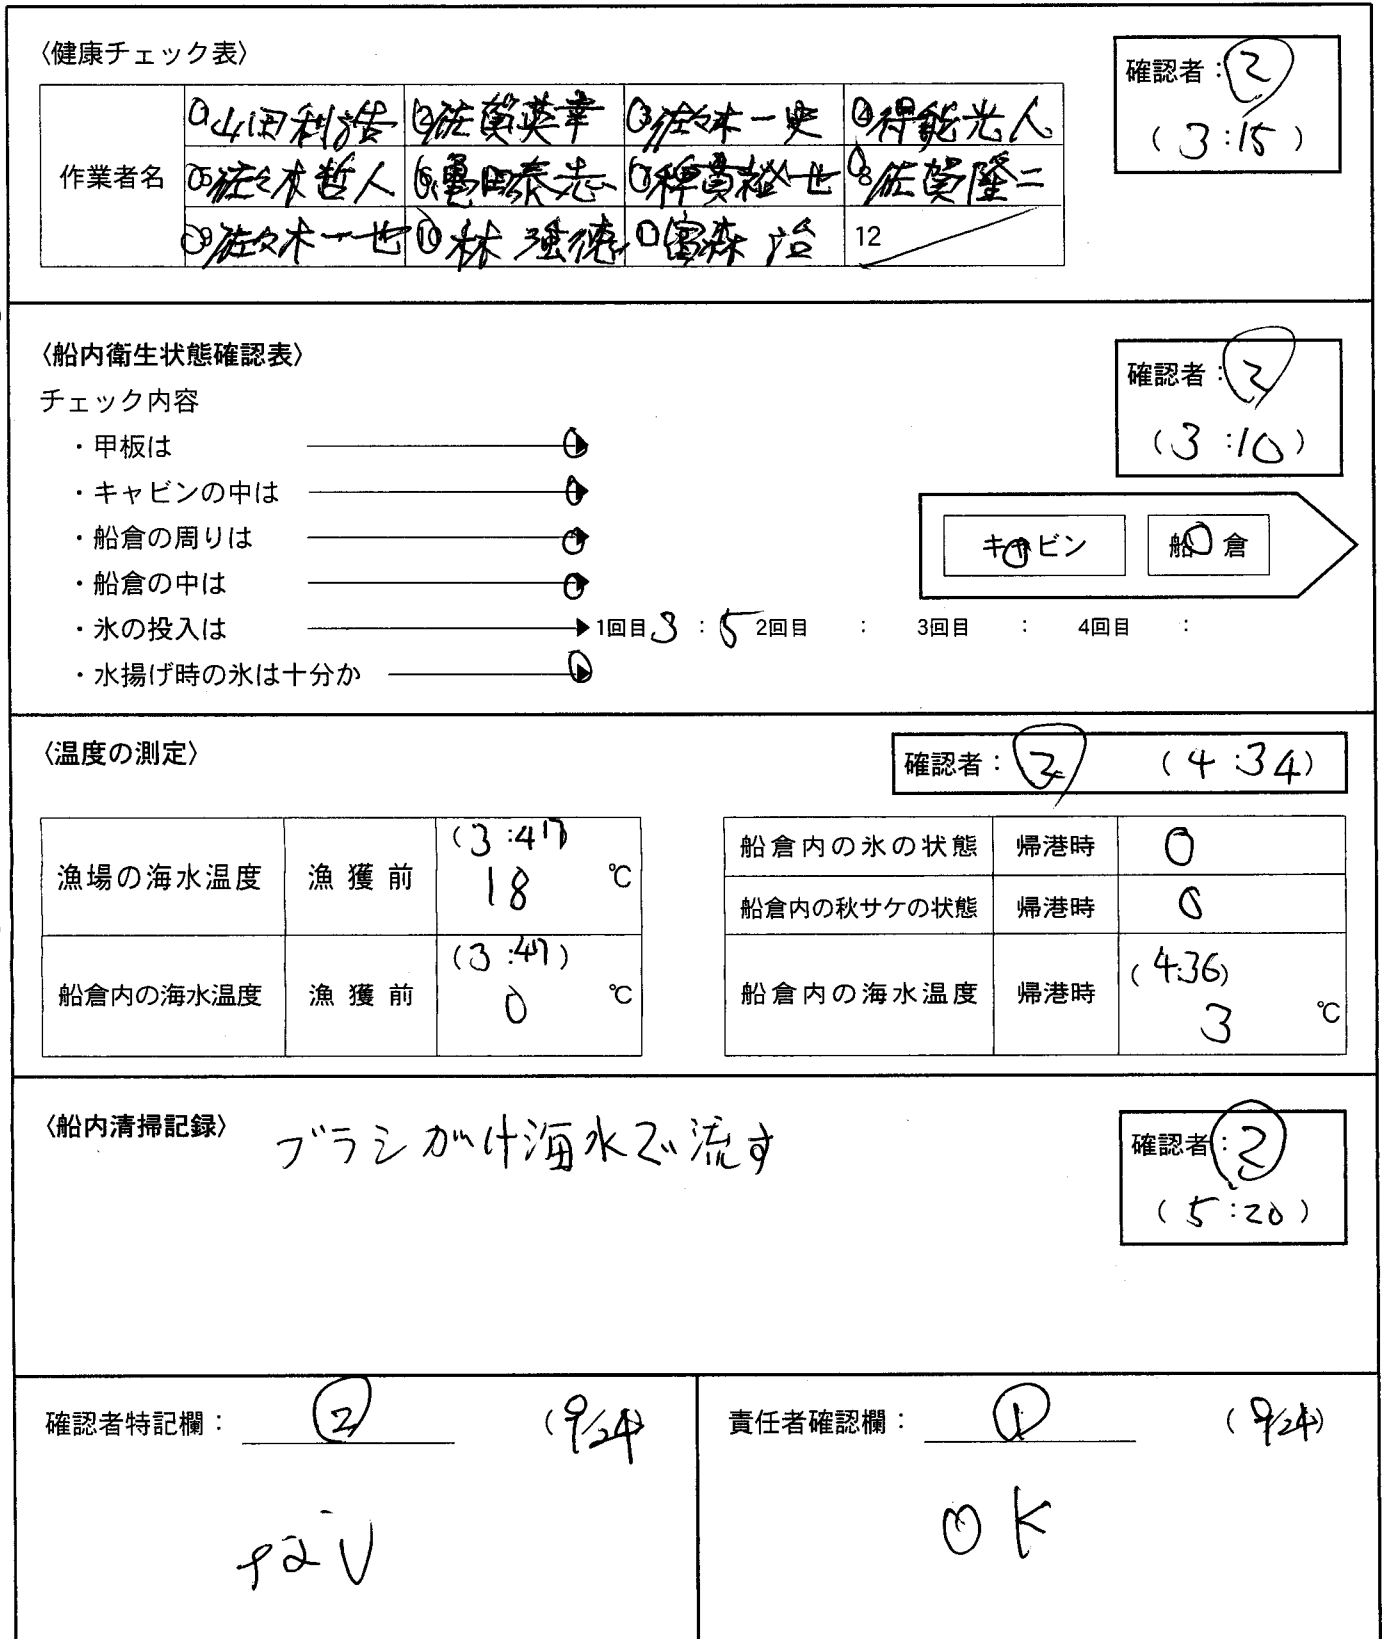 〈健康チェック表〉
確認者：②
(3:15)
作業者名
①山田利浩 ②佐賀英幸 ③佐々木一史 ④得能光人
⑤佐々木哲人 ⑥亀田泰志 ⑦ ⑧佐賀隆二
⑨佐々木一也 ⑩林強徳 ⑪富森治 12
〈船内衛生状態確認表〉
確認者：②
(3:10)
チェック内容
・甲板は ○
・キャビンの中は ○
・船倉の周りは ○
・船倉の中は ○
キャビン 船倉
・氷の投入は 1回目 3:5 2回目 : 3回目 : 4回目 :
・水揚げ時の氷は十分か ○
〈温度の測定〉
確認者：② (4:34)
漁場の海水温度 漁獲前 18 ℃
船倉内の海水温度 漁獲前 0 ℃
船倉内の氷の状態 帰港時 ○
船倉内の秋サケの状態 帰港時 ○
船倉内の海水温度 帰港時 (4:36) 3 ℃
〈船内清掃記録〉
ブラシがけ海水で流す
確認者：②
(5:20)
確認者特記欄：② (9/24)
なし
責任者確認欄：① (9/24)
OK